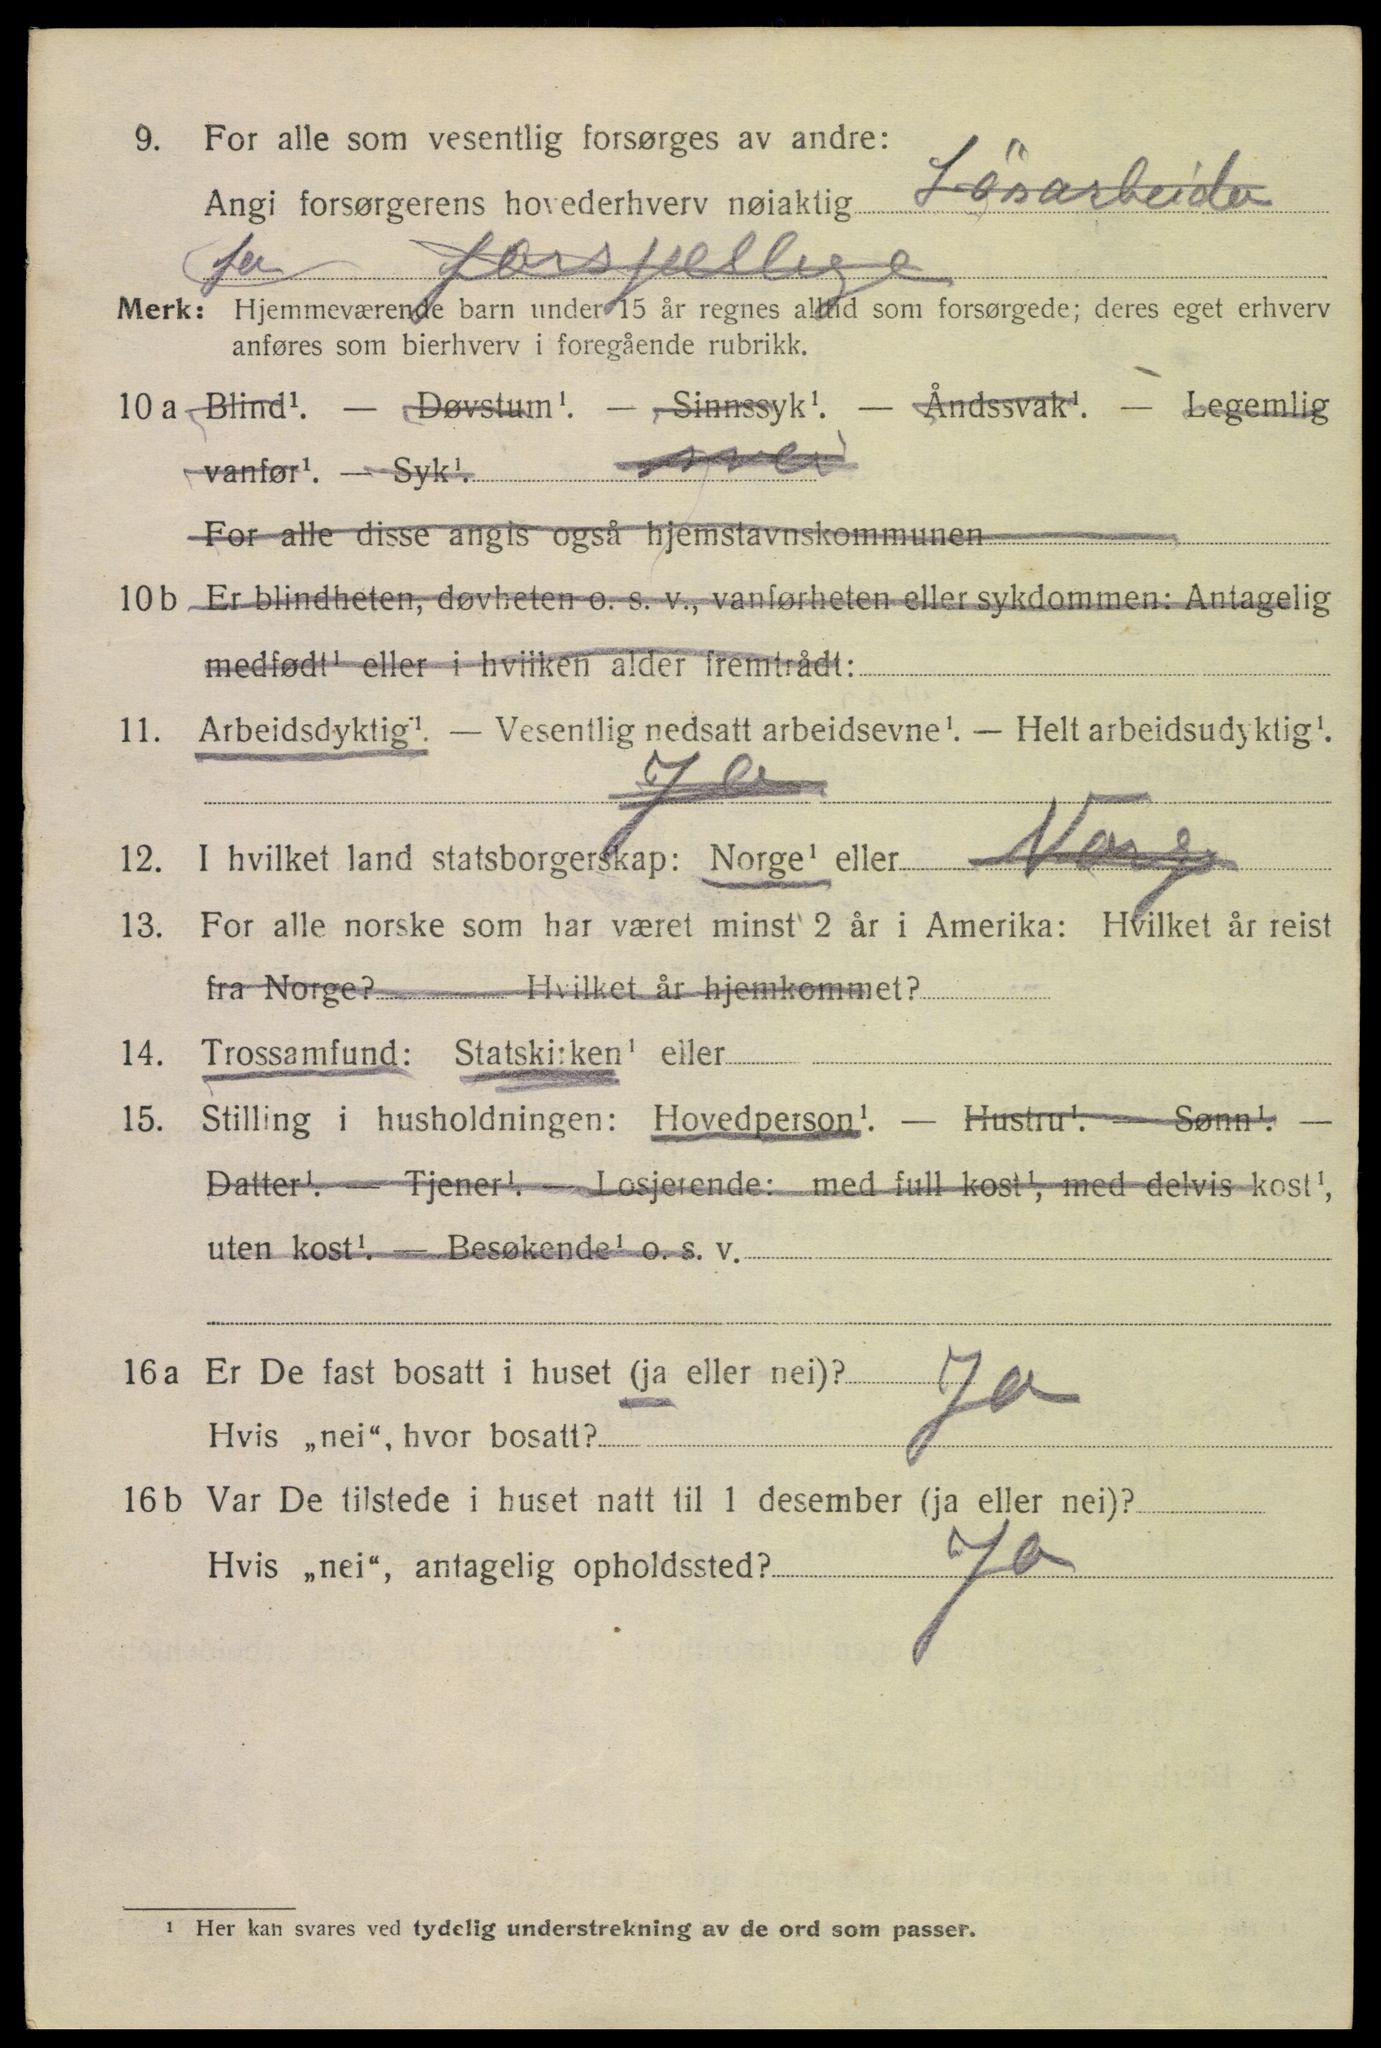 9. For alle som vesentlig forsørges av andre:
Angi forsørgerens hovederhverv nøiaktig Lösarbeider
for forsjellige
Merk: Hjemmeværende barn under 15 år regnes alltid som forsørgede; deres eget erhverv
anføres som bierhverv i foregående rubrikk.
10 a Blind¹. — Døvstum¹. — Sinnssyk¹. — Åndssvak¹. — Legemlig
vanfør¹. — Syk¹. nei
For alle disse angis også hjemstavnskommunen
10 b Er blindheten, døvheten o. s. v., vanførheten eller sykdommen: Antagelig
medfødt¹ eller i hvilken alder fremtrådt:
11. Arbeidsdyktig¹. — Vesentlig nedsatt arbeidsevne¹. — Helt arbeidsudyktig¹.
Ja
12. I hvilket land statsborgerskap: Norge¹ eller Norge
13. For alle norske som har været minst 2 år i Amerika: Hvilket år reist
fra Norge? Hvilket år hjemkommet?
14. Trossamfund: Statskirken¹ eller
15. Stilling i husholdningen: Hovedperson¹. — Hustru¹. — Sønn¹. —
Datter¹. — Tjener¹. — Losjerende: med full kost¹, med delvis kost¹,
uten kost¹. — Besøkende¹ o. s. v.
16 a Er De fast bosatt i huset (ja eller nei)? Ja
Hvis „nei“, hvor bosatt?
16 b Var De tilstede i huset natt til 1 desember (ja eller nei)?
Hvis „nei“, antagelig opholdssted? Ja
¹ Her kan svares ved tydelig understrekning av de ord som passer.